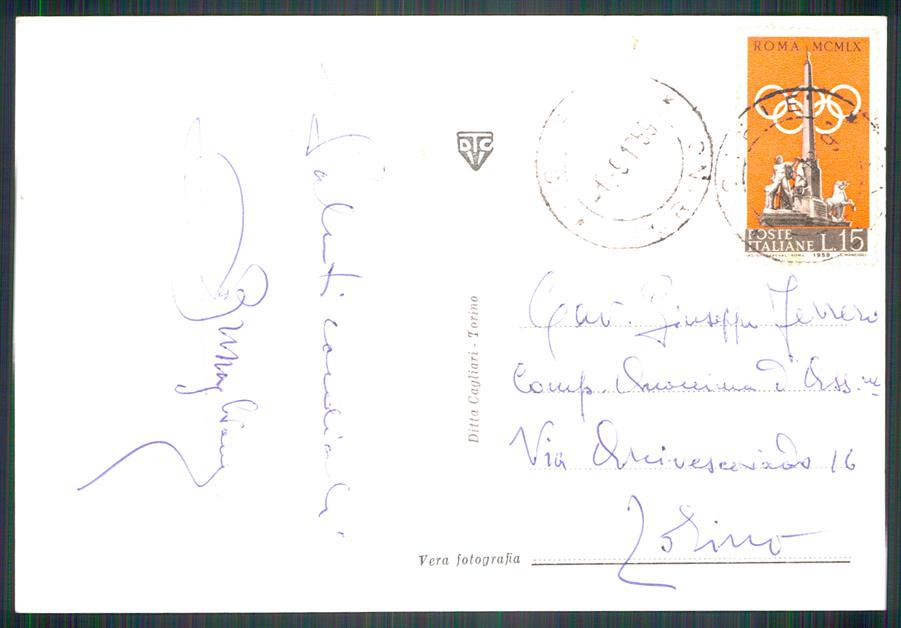 Saluti cordiali
DTC
Ditta Cagliari - Torino
Vera fotografia
ROMA MCMLX
POSTE
ITALIANE L.15
1959
Cav. Giuseppe Ferrero
Comp. Anonima d'Ass.ne
Via Arcivescovado 16
Torino